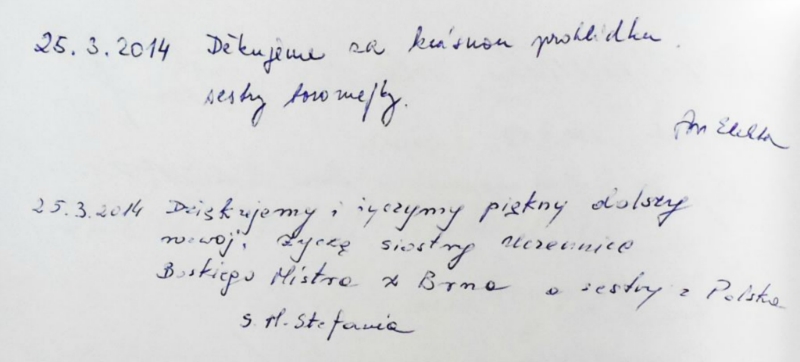 25.3.2014 Děkujeme za krásnou prohlídku.
sestry boromejky.
25.3.2014 Dziękujemy i życzymy piękny dalszy
rozwój. Życzę siostry Uczennice
Boskiego Mistra z Brna a sestry z Polska
S. M. Stefania